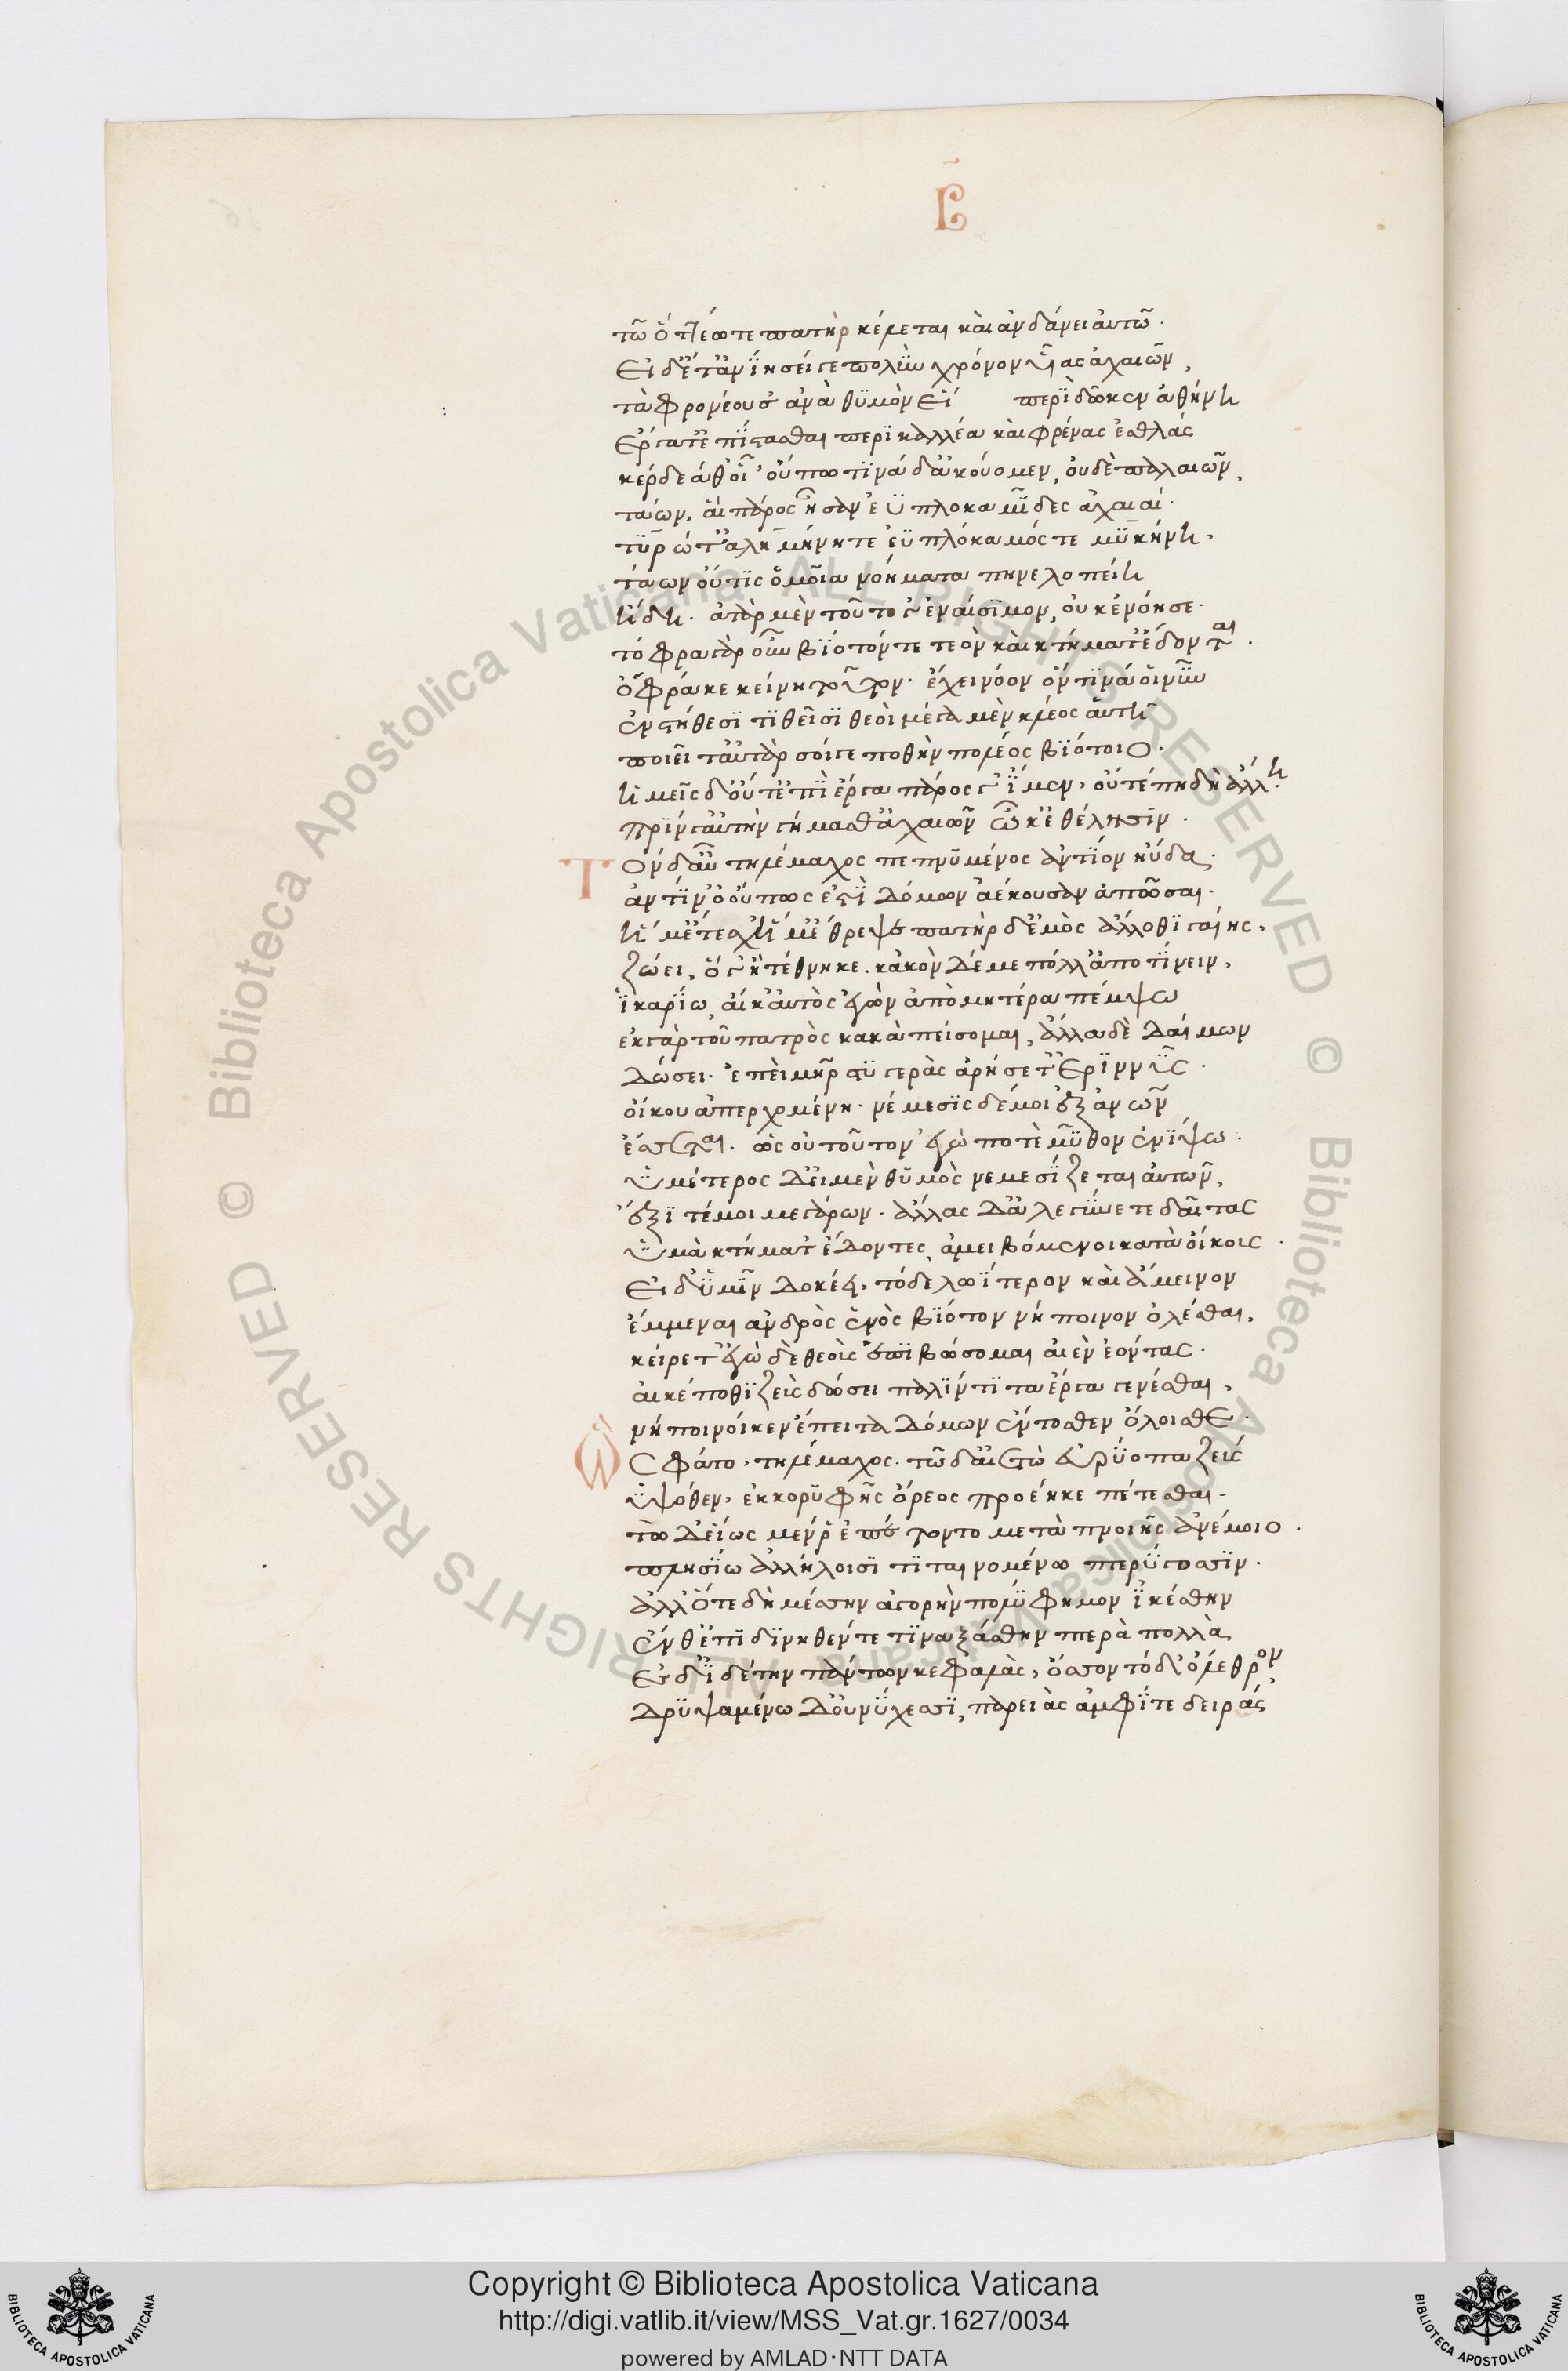 β
τῶ ὅτεώ τε πατὴρ κέλεται καὶ ἁνδάνει αὐτῶ.
Εἰ δ' ἔτ' ἀνϊήσει γε πολὺν χρόνον υἷας ἀχαιῶν,
τὰ φρονέουσ' ἀνὰ θϋμὸν περὶ δῶκεν ἀθήνη
Ἔργα τ' ἐπίστασθαι περϊκαλλέα καὶ φρένας ἐσθλάς
κέρδεά θ' οἷ' οὔπω τϊνά δ' ἀκούομεν, οὐδὲ παλαιῶν,
τάων, αἳ πάρος ἦσαν ἐϋπλοκαμῖδες ἀχαιαί.
τϋρώ τ' ἀλκμήνη τε ἐϋπλόκαμός τε μϋκήνη.
τάων οὔτϊς ὁμοῖα νοήματα πηνελοπείη
ἤδη. ἀτὰρ μὲν τοῦτό γ' ἐναίσϊμον, οὐκ ἐνόησε.
τόφρα γὰρ οὖν βϊότόν τε τεὸν καὶ κτήματ' ἔδονται.
ὄφρά κε κείνη τοῦτον ἔχει νόον ὅν τϊνά οἱ νῦν
ἐν στήθεσϊ τϊθεῖσϊ θεοὶ μέγα μὲν κλέος αὐτῆ
ποιεῖτ' αὐτὰρ σοί γε ποθὴν πολέος βϊότοιο.
ἡμεῖς δ' οὔτ' ἐπὶ ἔργα πάρος γ' ἴμεν, οὔτέ πη δὴ ἄλλη.
πρΐν γ' αὐτὴν γήμασθ' ἀχαιῶν ὧ κ' ἐθέλησϊν.
Τὸν δ' αὖ τηλέμαχος πεπνϋμένος ἀντΐον ηὔδα.
ἀντΐνο' οὔπως ἐστὶ δόμων ἀέκουσαν ἀπῶσαι.
ἥ μ' ἔτεχ' ἥ μ' ἔθρεψε πατὴρ δ' ἐμὸς ἄλλοθϊ γαίης,
ζώει, ὅ γ' ἢ τέθνηκε. κακὸν δέ με πόλλ' ἀποτΐνειν,
ϊκαρΐω, αἴ κ' αὐτὸς ἑκὼν ἀπὸ μητέρα πέμψω
ἐκ γὰρ τοῦ πατρὸς κακὰ πείσομαι, ἄλλα δὲ δαίμων
δώσει. ἐπεὶ μήτηρ στϋγερὰς ἀρήσετ' Ἐρϊννῦς.
οἴκου ἀπερχομένη. νέμεσϊς δέ μοι ἐξ ἀνθρώπων
ἔσσεται. ὣς οὐ τοῦτον ἐγώ ποτὲ μῦθον ἐνΐψω.
ὑμέτερος δ' εἰ μὲν θϋμὸς νεμεσΐζεται αὐτῶν,
ἔξϊτέ μοι μεγάρων. ἄλλας δ' ἀλεγΰνετε δαῖτας
ὑμὰ κτήματ' ἔδοντες, ἀμειβόμενοι κατὰ οἴκοις.
Εἰ δ' ὑμῖν δοκέει, τόδε λωΐτερον καὶ ἄμεινον
ἔμμεναι ἀνδρὸς ἑνὸς βϊότον νήποινον ὀλέσθαι,
κείρετ' ἐγὼ δὲ θεοὺς ἐπιβώσομαι αἰὲν ἐόντας.
αἴ κέ ποθϊ ζεὺς δώσει παλΐντϊτα ἔργα γενέσθαι,
νήποινοί κεν ἔπειτα δόμων ἔντοσθεν ὄλοισθε.
Ὣς φάτο, τηλέμαχος. τῶ δ' αἰετὼ εὐρΰοπα ζεύς
ὑψόθεν, ἐκ κορϋφῆς ὄρεος προέηκε πέτεσθαι.
τὼ δ' ἕως μέν ῥ' ἐπέτοντο μετὰ πνοιῆς ἀνέμοιο.
πλησΐω ἀλλήλοισϊ τϊταινομένω πτερΰγεσσϊν.
ἀλλ' ὅτε δὴ μέσσην ἀγορὴν πολΰφημον ϊκέσθην
ἔνθ' ἐπϊδϊνηθέντε τϊναξάσθην πτερὰ πολλὰ
Ἐς δ' ϊδέτην πάντων κεφαλὰς, ὄσσοντό δ' ὄλεθρον,
δρϋψαμένω δ' ὀνΰχεσσϊ, παρειὰς ἀμφΐ τε δειράς
© Biblioteca Apostolica Vaticana ALL RIGHTS RESERVED © Biblioteca Apostolica Vaticana ALL RIGHTS RESERVED
Copyright © Biblioteca Apostolica Vaticana
http://digi.vatlib.it/view/MSS_Vat.gr.1627/0034
powered by AMLAD·NTT DATA
BIBLIOTECA APOSTOLICA VATICANA
BIBLIOTECA APOSTOLICA VATICANA